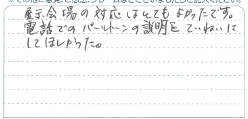 展示会場の対応はとてもよかったです。
電話でのパールトーンの説明をていねいに
してほしかった。